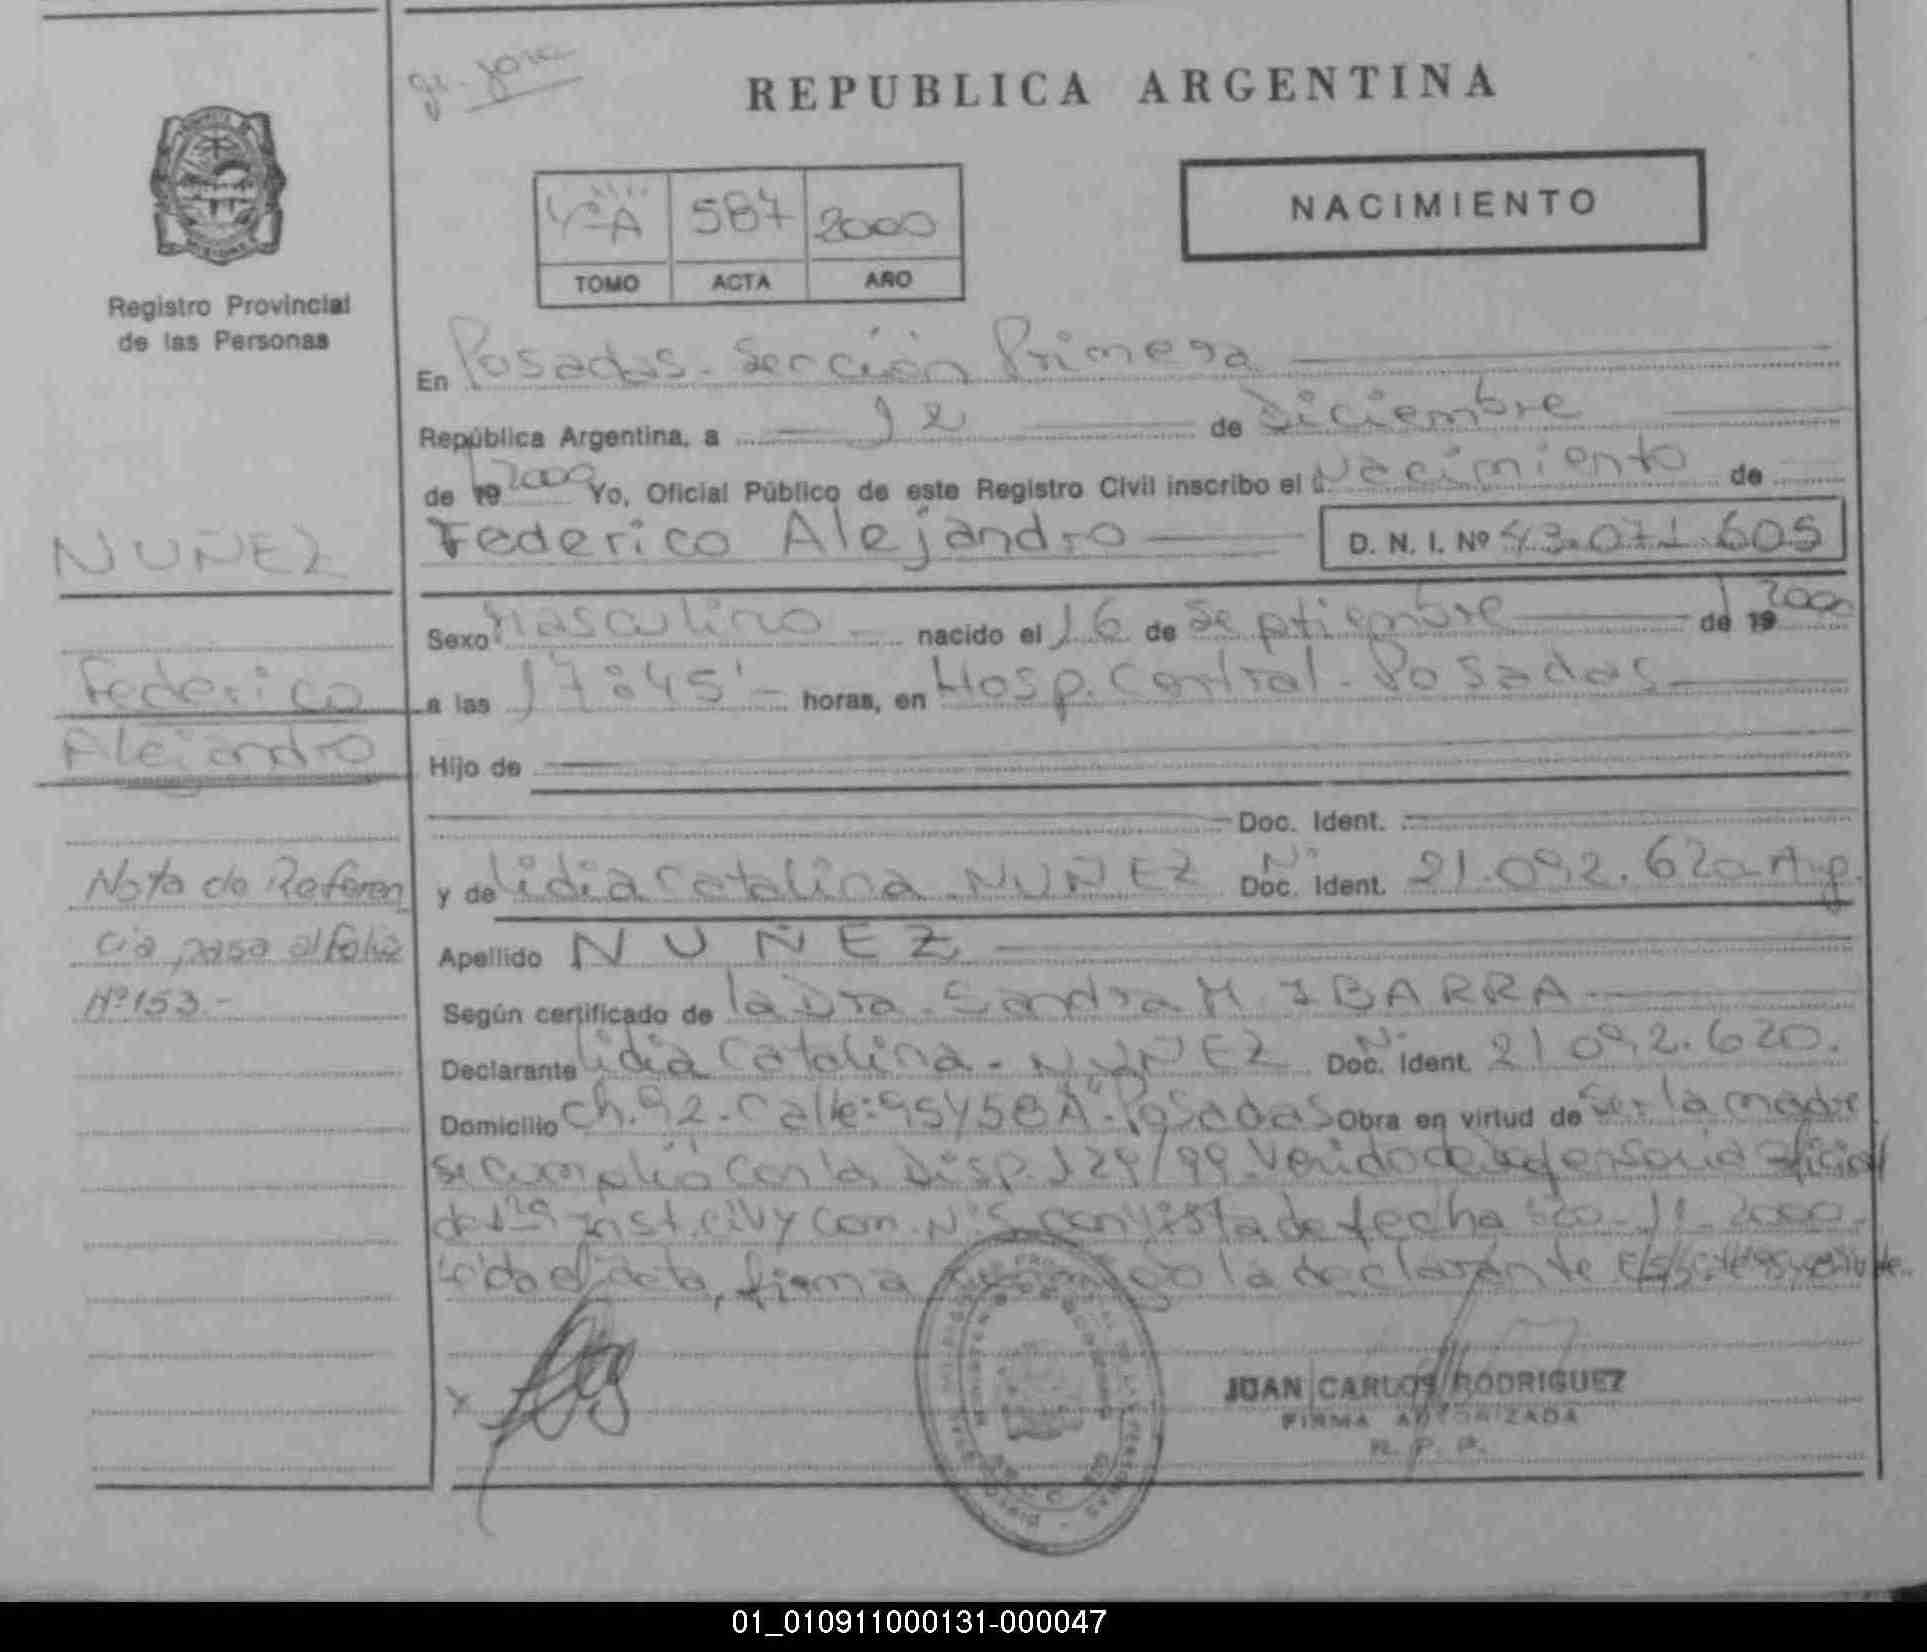 REPUBLICA ARGENTINA
Registro Provincial
de las Personas
587 2000
TOMO ACTA AÑO
NACIMIENTO
En Posadas. Sección Primera
República Argentina, a 12 de Diciembre
de 19 2000 Yo, Oficial Público de este Registro Civil inscribo el Nacimiento de
Federico Alejandro D. N. I. Nº 43.071.605
NUÑEZ
Federico
Alejandro
Sexo Masculino nacido el 16 de Septiembre de 19 2000
a las 17:45' horas, en Hosp. Central. Posadas
Hijo de
Doc. Ident.
y de Lidia Catalina NUÑEZ Nº Doc. Ident. 21.092.620 Arg.
Apellido NUÑEZ
Según certificado de la Dra. Sandra M. IBARRA
Declarante Lidia Catalina. NUÑEZ Nº Doc. Ident. 21.092.620.
Domicilio Ch. 92. Calle: 95 y 58 "A". Posadas Obra en virtud de Ser la madre
Se cumplió con la Disp. 129/99. Venido de Defensoria Oficial
de 1ra Inst. Civ y Com. Nº 5 con vista de fecha 20-11-2000.
Leida el acta, firma la declarante
Nota de Referen
cia pasa al folio
Nº 153.-
JUAN CARLOS RODRIGUEZ
FIRMA AUTORIZADA
R. P. P.
01_010911000131-000047